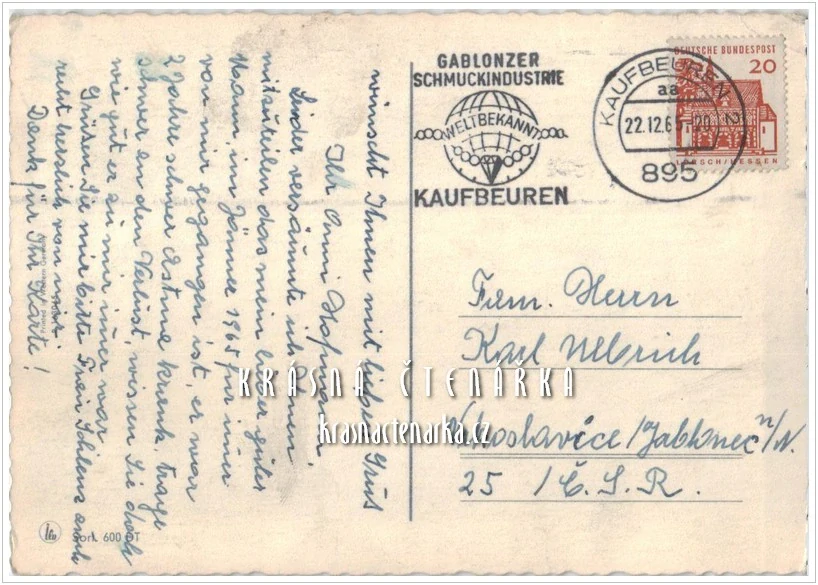 wünscht Ihnen mit lieben Grus
Ihr Anni Hofman
Leider versäumte ich Ihnen
mitzuteilen das mein lieber guter
Mann, im Jänner 1965 für immer
von mir gegangen ist, er war
2 Jahre schwer Astma krank, trage
schwer an den Verlust, wissen Sie doch
wie gut er zu mir immer war.
Grüßen Sie mir bitte Frau auch
recht herzlich von mir.
Dank für Ihr Karte!
Printed in Western Germany
Sort. 600 GT
GABLONZER
SCHMUCKINDUSTRIE
WELTBEKANNT
KAUFBEUREN
KAUFBEUREN 2
aa
22.12.65-20
895
DEUTSCHE BUNDESPOST
20
LORSCH/HESSEN
Fam. Herrn
Karl Ulbrich
/Jablonec n/N.
25 / Č. S. R.
KRÁSNÁ ČTENÁRKA
krasnactenarka.cz